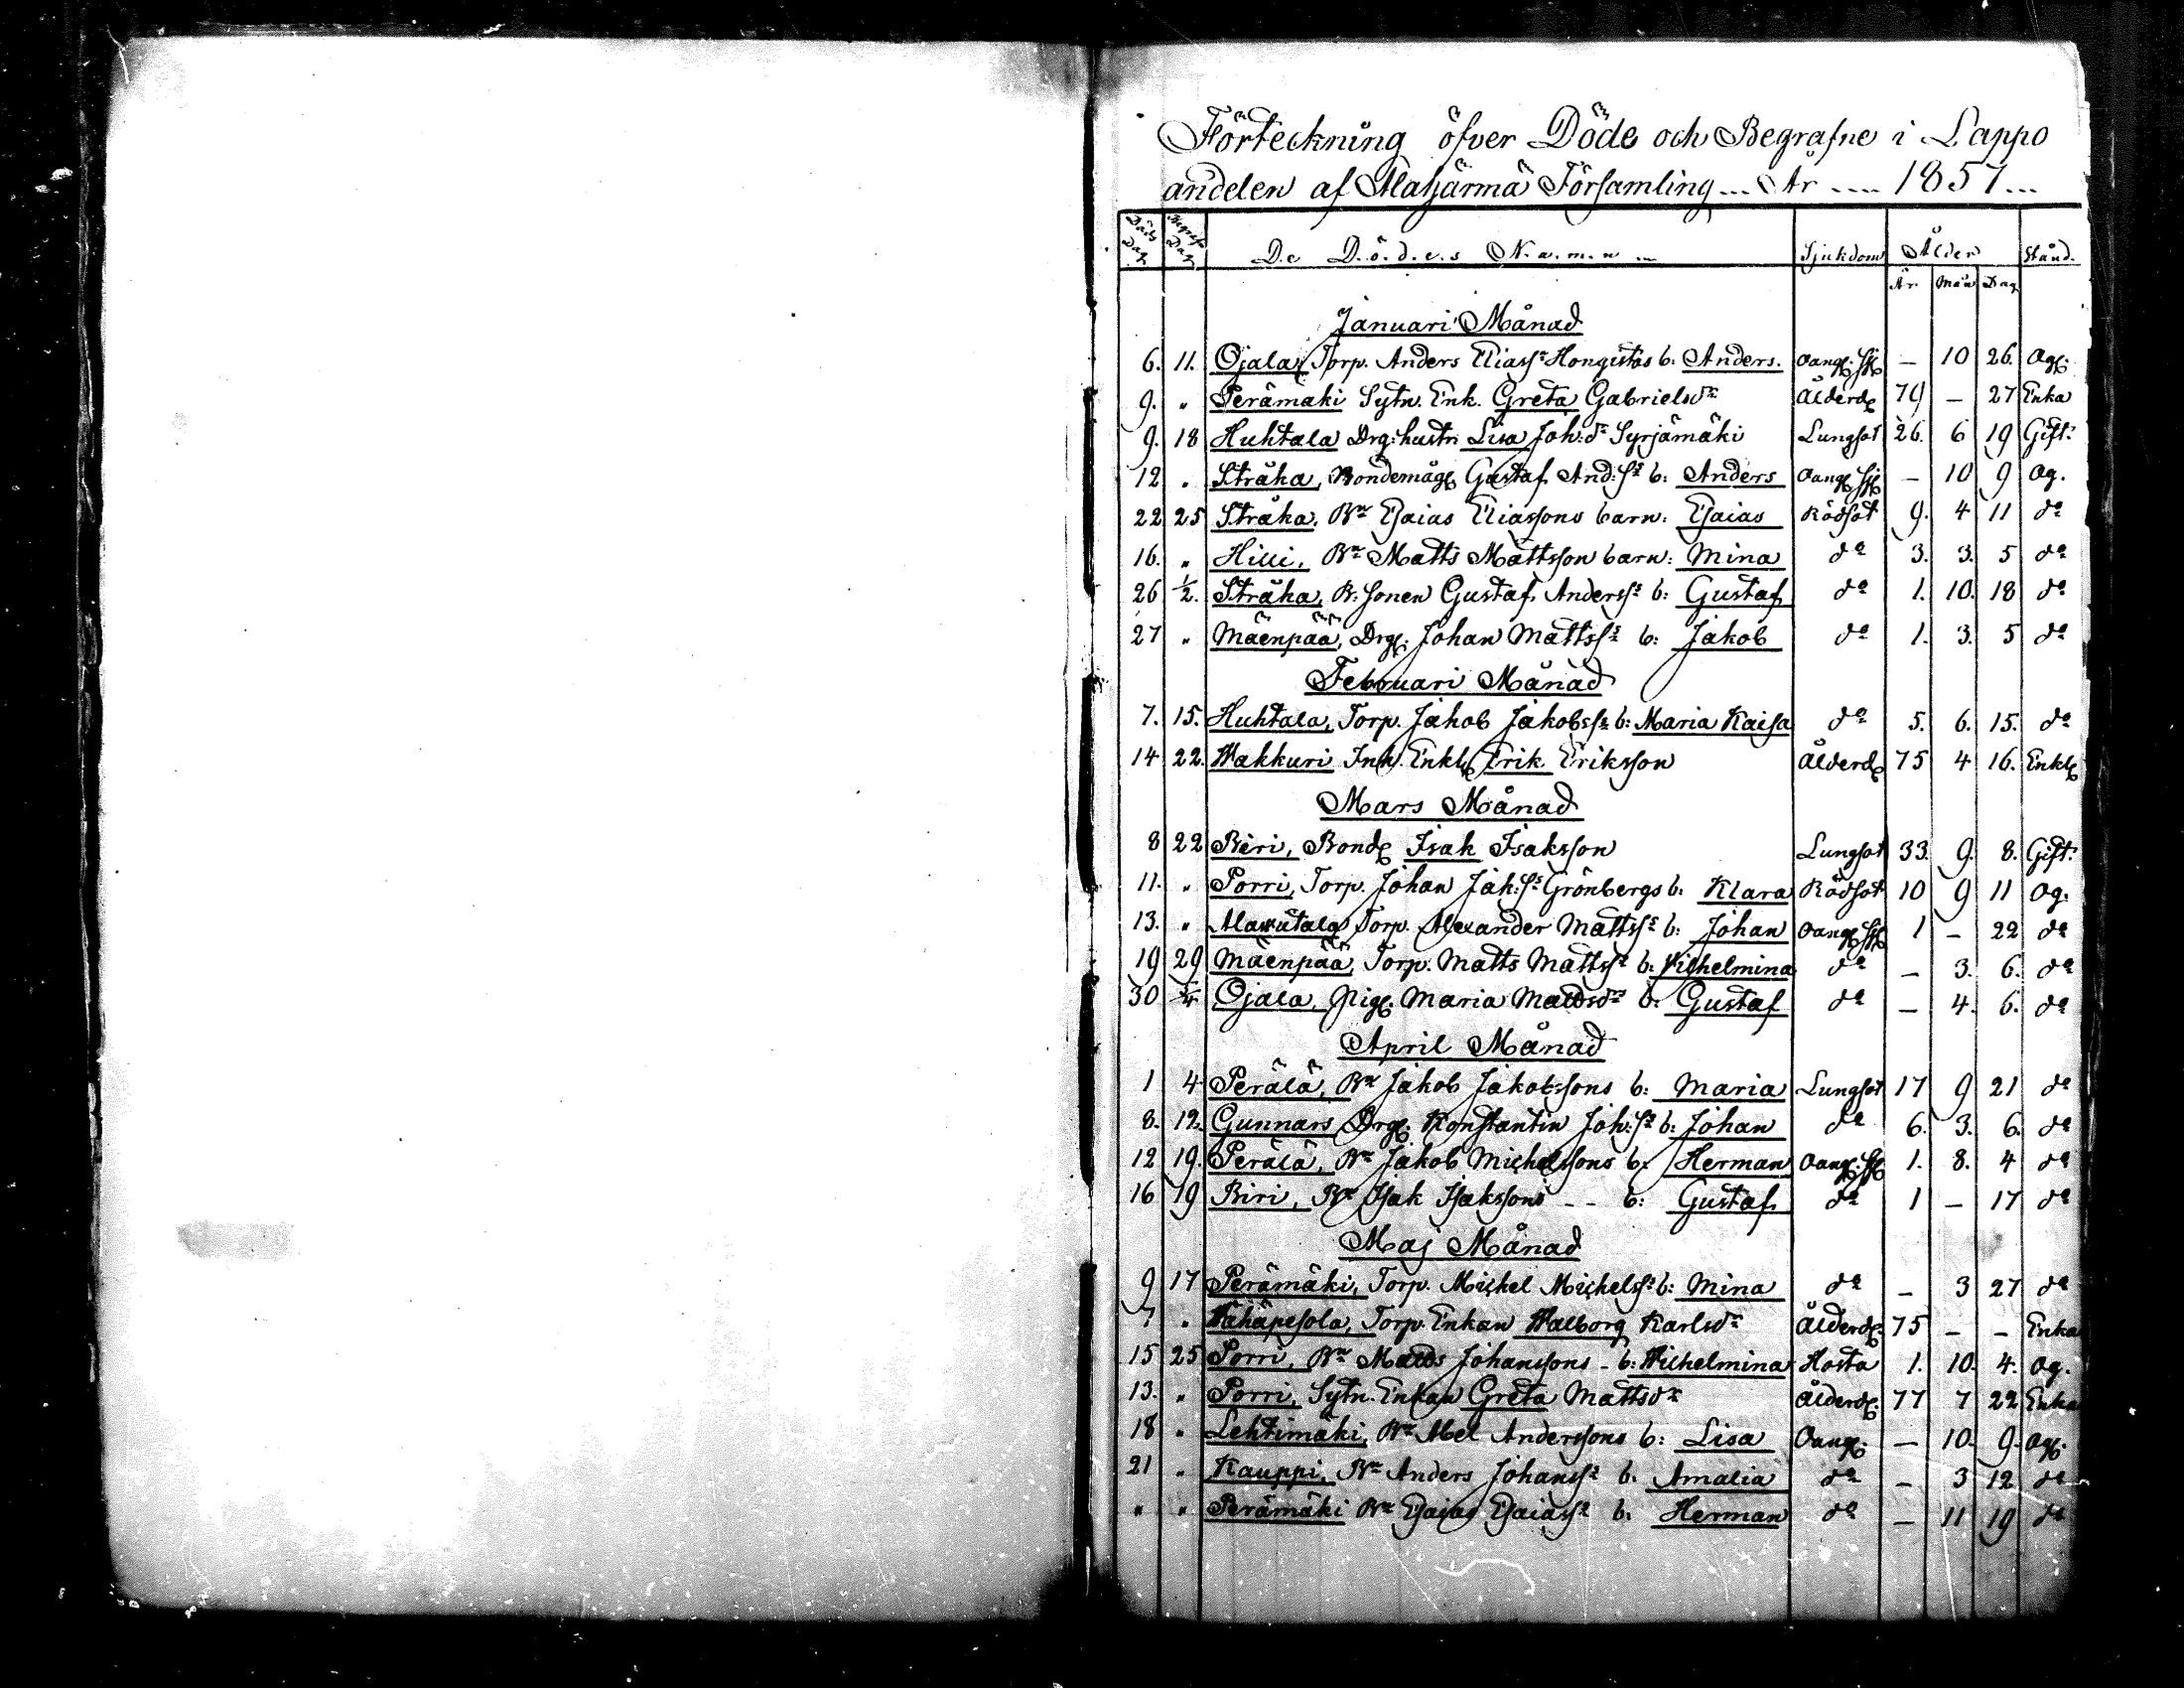 Förteckning öfver Döde och Begrafne i Lappo
andelen af Alahärmä Församling... År .... 1857...
Döds Dag Begrafn Dag De Dödes Namn ... Sjukdom Ålder Stånd.
År. Mån Dag
Januari Månad
6. 11. Ojala, Torp. Anders Eliass:s Hongistos b: Anders. Oang: Sj: — 10 26. Og:
9. " Perämäki Sytn. Enk. Greta Gabrielsdr Ålderd: 79 — 27 Enka
9. 18 Huhtala Drg: hustr: Lisa Joh:dr Syrjämäki Lungsot 26. 6 19 Gift:
12 " Stråka, Bondemåg: Gustaf And:Ss b: Anders Oang: Sj: — 10 9 Og.
22 25 Stråka, Bn Esaias Eliassons barn: Esaias Rödsot 9. 4 11 do
16. " Hilli, Bn Matts Mattsson barn: Mina do 3. 3. 5 do
26 1/2. Stråka, B: Sonen Gustaf Anderss:s b: Gustaf do 1. 10. 18 do
27 " Mäenpää, Drg: Johan Mattss:s b: Jakob do 1. 3. 5 do
Februari Månad
7. 15. Huhtala, Torp. Jakob Jakobss:s b: Maria Kaisa do 5. 6. 15. do
14 22. Wakkuri Inh. Enkl: Erik Eriksson Ålderd: 75 4 16. Enkl:
Mars Månad
8 22 Biri, Bond: Isak Isaksson Lungsot 33. 9. 8. Gift:
11. " Porri, Torp. Johan Jäh:Ss Grönbergs b: Klara Rödsot 10 9 11 Og.
13. " Torp. Alexander Mattss:s b: Johan Oang: Sj: 1 — 22 do
19 29 Mäenpää, Torp. Matts Mattss:s b: Wilhelmina do — 3. 6. do
30 5/4 Ojala, Pig: Maria Mattsdrs b: Gustaf do — 4. 6. do
April Månad
1 4 Perälä, Bn Jakob Jakobssons b: Maria Lungsot 17 9 21 do
8. 12. Gunnars Drg: Konstantin Joh:Ss b: Johan do 6. 3. 6. do
12 19. Perälä, Bn Jakob Michelssons b: Herman Oang: Sj: 1. 8. 4 do
16 19 Biri, Bn Isak Isakssons - - b: Gustaf do 1 — 17 do
Maj Månad
9 17 Perämäki, Torp. Michel Michelss:s b: Mina do — 3 27 do
7 " Wähäpesola, Torp. Enkan Walborg Karlsdr Ålderd: 75 — — Enka
15 25 Porri, Bn Matts Johanssons - b: Wilhelmina Hosta 1. 10. 4. Og.
13. " Porri, Sytn. Enkan Greta Mattsdr Ålderd: 77 7 22 Enka
18 " Lehtimäki, Bn Abel Anderssons b: Lisa Oang: — 10. 9. Og:
21 " Kauppi, Bn Anders Johanss:s b: Amalia do — 3 12 do
" " Perämäki Bn Esaias Esaiass:s b: Herman do — 11 19 do